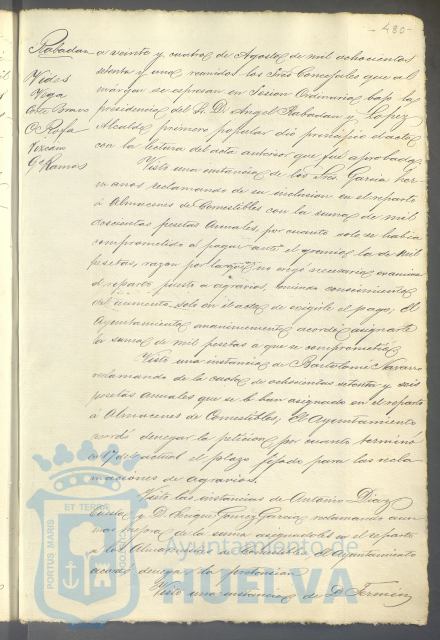 480
Rabadan
Vides
Vega
Coto Bravo
O Rafa
G Ramos
a veinte y cuatro de Agosto de mil ochocientos
setenta y uno, reunidos los Sres Concejales que al
márgen se espresan en Sesion Ordinaria bajo la
presidencia del Sr. D. Angel Rabadan y Lopez
Alcalde primero popular dió principio el acto
con la lectura del acta anterior que fué aprobada.
Vista una instancia de los Sres. Garcia her
manos reclamando de su inclusion en el reparto
á Almacenes de Comestibles con la suma de mil
doscientas pesetas Anuales, por cuanto solo se habia
comprometido á pagar ante el gremio la de mil
pesetas, razon por la que no creyó necesario examinar
el reparto puesto a agravios, teniendo conocimiento
del aumento solo en el acto de exigirle el pago; El
Ayuntamiento unanimemente acordó asignarle
la suma de mil pesetas a que se comprometió.
Vista una instancia de Bartolomé Navarro
reclamando de la cuota de ochocientas setenta y seis
pesetas Anuales que se le han asignado en el reparto
á Almacenes de Comestibles, El Ayuntamiento
acordó denegar la peticion por cuanto terminó
el 17 del actual el plazo fijado para las recla
maciones de agravios.
Vista las instancias de Antonio Diaz
y D. Enrique Gomez Garcia reclamando
de la suma asignada en el reparto
a los Almacenes de Comestibles, El Ayuntamiento
acordó denegar la pretension.
Vista una instancia de D. Fermin
PORTUS MARIS
ET TERRAE
CUSTODIA
Ayuntamiento de
HUELVA